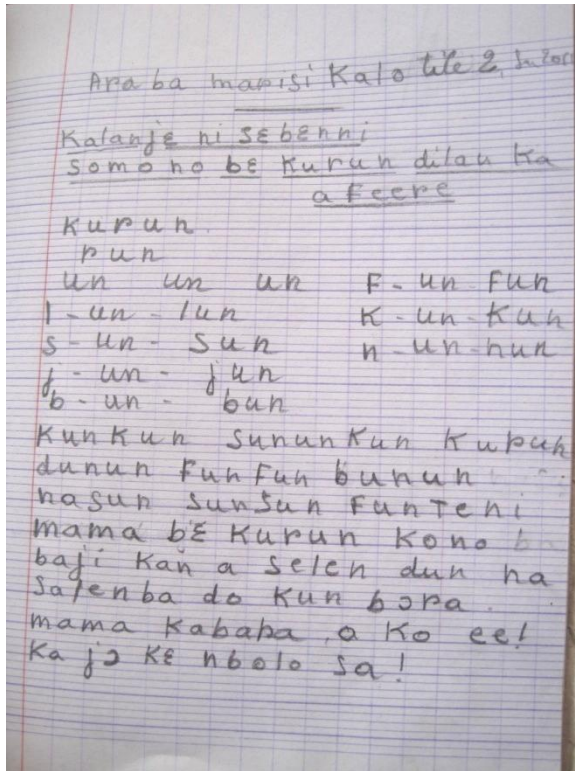 Araba marisi Kalo tile 2,
Kalanjɛ ni sɛbɛnni
Somono bɛ Kurun dilan Ka
a Feere
Kurun.
run
un un un F - un Fun
l - un - lun K - un - Kun
s - un - sun n - un - nun
j - un - jun
b - un - bun
KunKun sununKun Kurun
dunun FunFun bunun
nasun sunsun Funteni
mama bɛ Kurun Kono
baji Kan a selen dun na
Sajenba do Kun bora.
mama Kabara, a Ko ee!
Ka jɔ Kɛ nbolo sa!